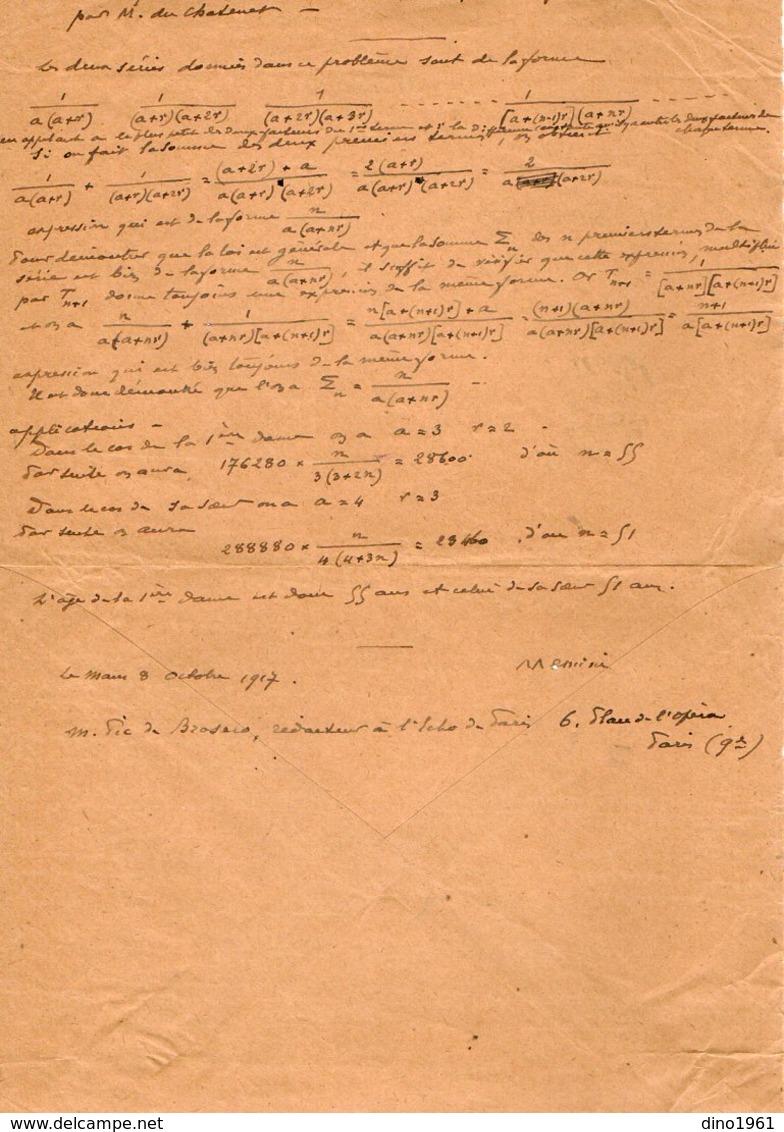 par M. du Chatenet —
Les deux séries données dans ce problème sont de la forme
1/a(a+r) 1/(a+r)(a+2r) 1/(a+2r)(a+3r) - - - - - 1/[a+(n-1)r](a+nr) - - -
en appelant a le plus petit des deux facteurs du 1er terme et r la différence constante qu'il y a entre les deux facteurs de chaque terme.
Si on fait la somme des deux premiers termes, on obtient
1/a(a+r) + 1/(a+r)(a+2r) = (a+2r)+a/a(a+r)(a+2r) = 2(a+r)/a(a+r)(a+2r) = 2/a(a+2r)
expression qui est de la forme n/a(a+nr)
Pour démontrer que la loi est générale et que la somme Σn des n premiers termes de la
série est bien de la forme n/a(a+nr), il suffit de vérifier que cette expression,
par Tn+1 donne toujours une expression de la même forme. Or Tn+1 = 1/[a+nr][a+(n+1)r]
et on a n/a(a+nr) + 1/(a+nr)[a+(n+1)r] = n[a+(n+1)r]+a/a(a+nr)[a+(n+1)r] = (n+1)(a+nr)/a(a+nr)[a+(n+1)r] = n+1/a[a+(n+1)r]
expression qui est bien toujours de la même forme.
Il est donc démontré que l'on a Σn = n/a(a+nr) —
applications —
Dans le cas de la 1ère dame on a a=3 r=2 -
Par suite on aura 176280 × n/3(3+2n) = 28600 d'où n=55
Dans le cas de sa sœur on a a=4 r=3
Par suite on aura
288880 × n/4(4+3n) = 23460 . d'où n=51
L'âge de la 1ère dame est donc 55 ans et celui de sa sœur 51 ans.
Le Mans 8 Octobre 1917.
M. Pic de Brosero, rédacteur à l'Echo de Paris 6, Place de l'opéra
Paris (9e)
www.delcampe.net
dino1961